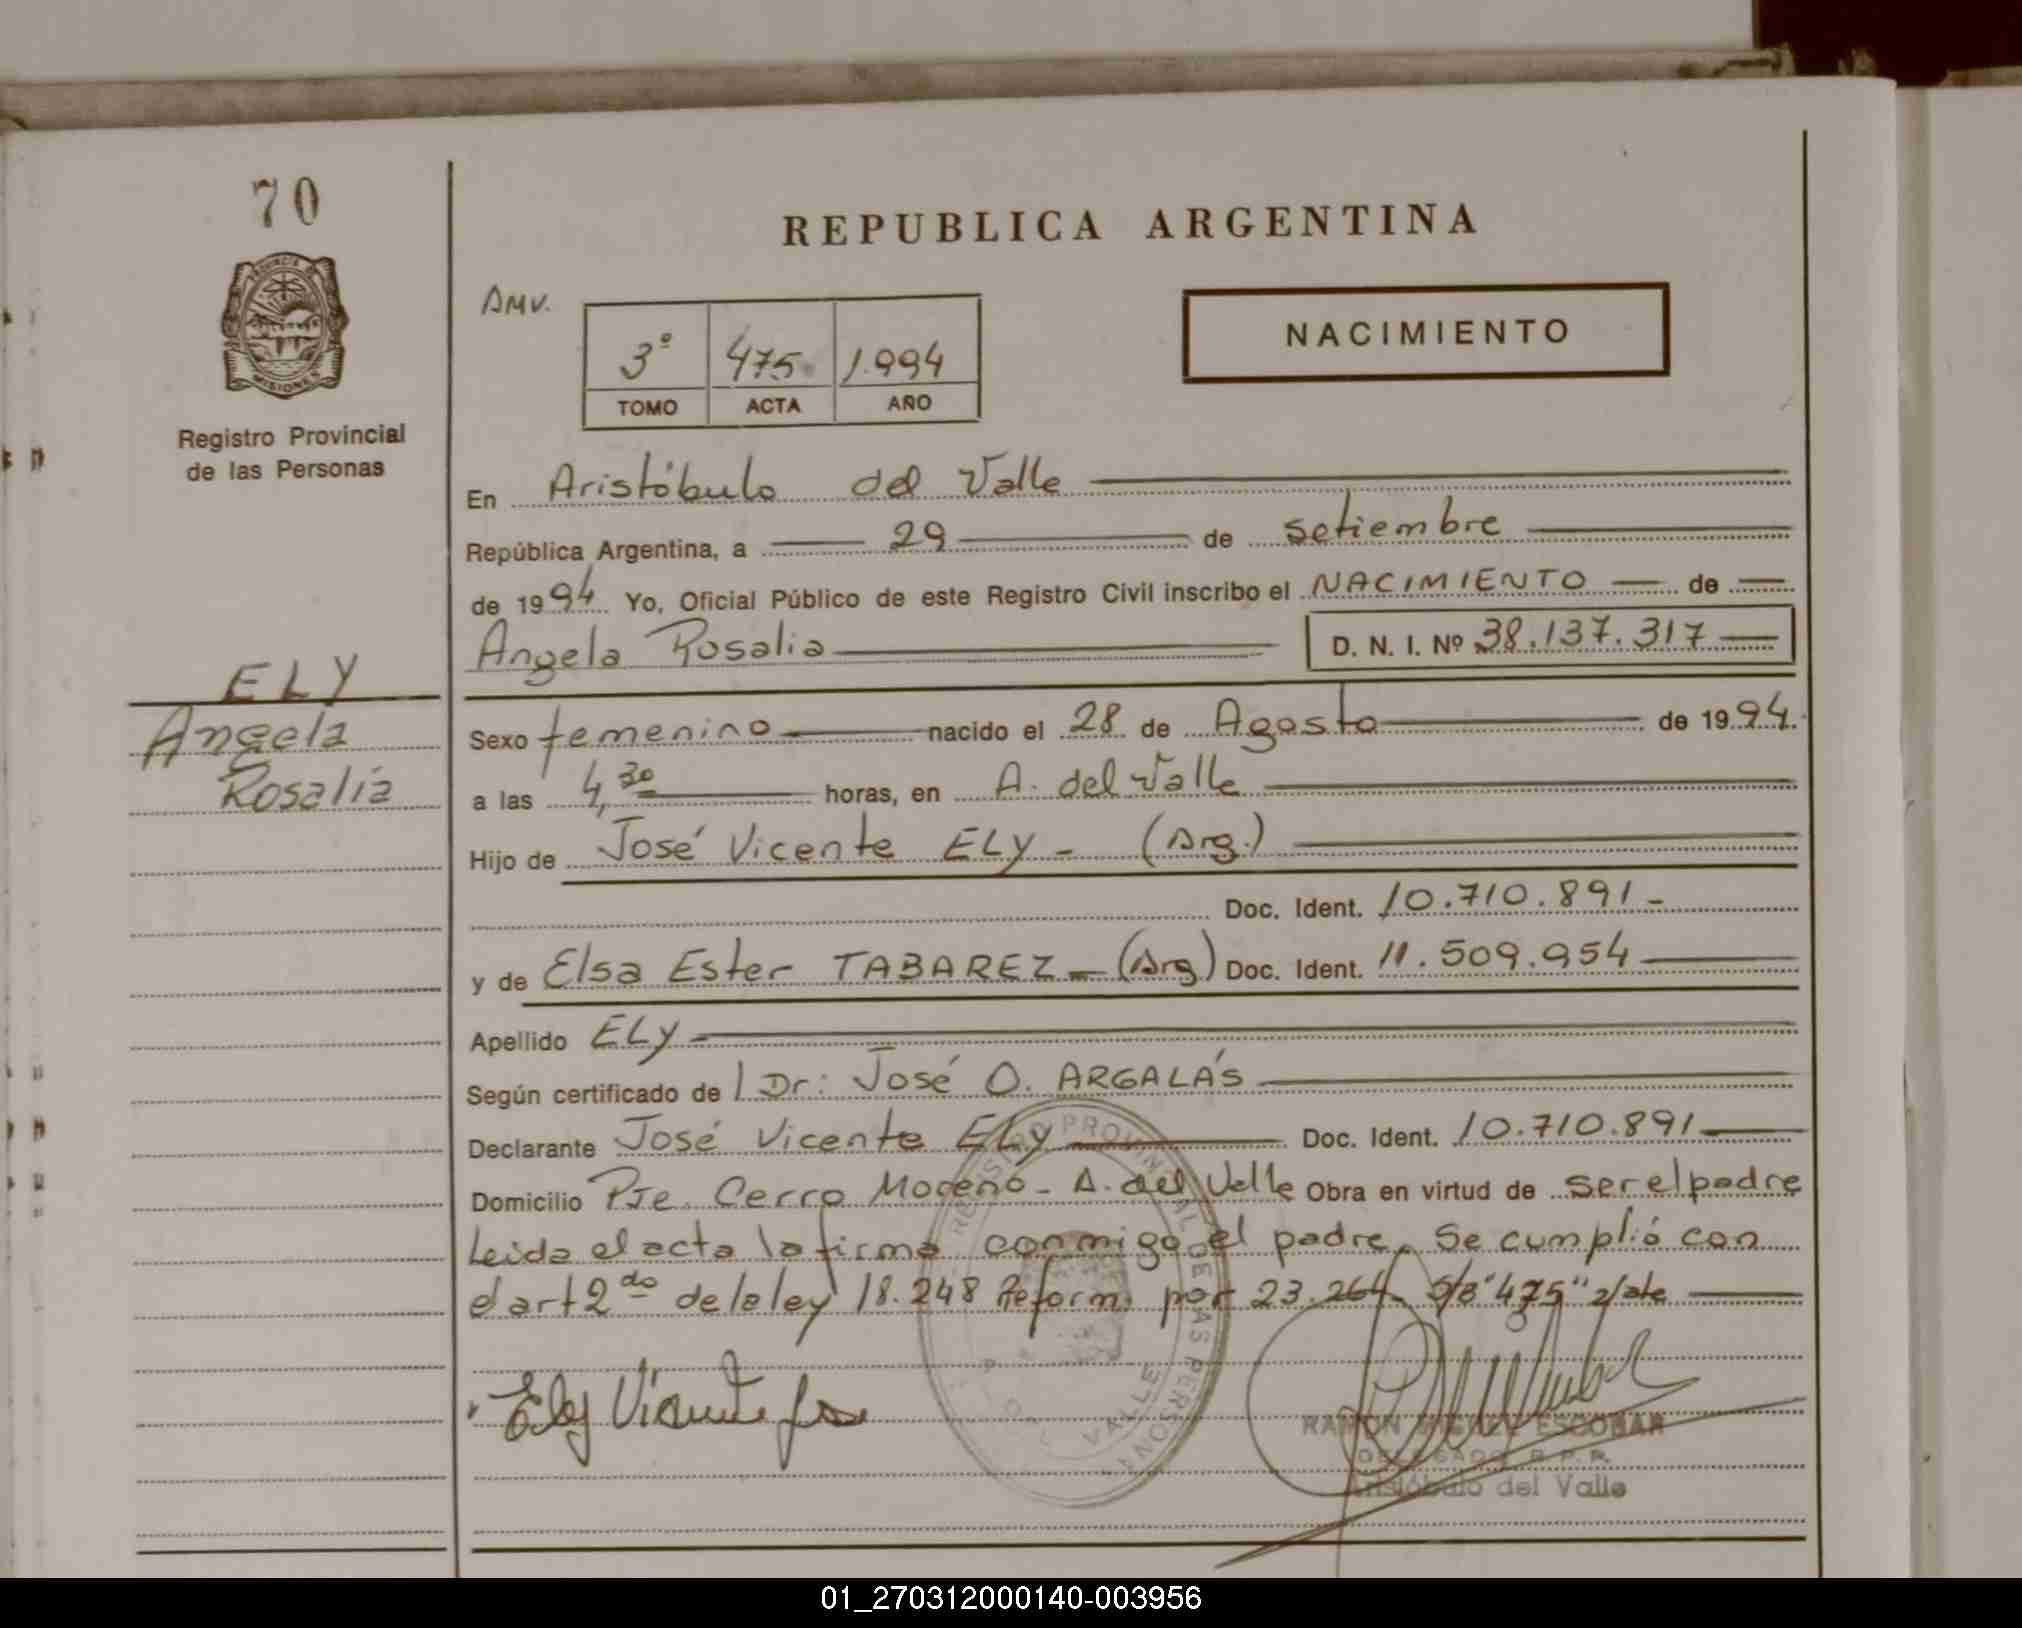 70
PROVINCIA DE
MISIONES
Registro Provincial
de las Personas
ELY
Angela
Rosalia
REPUBLICA ARGENTINA
AMV.
3º 475 1.994
TOMO ACTA AÑO
NACIMIENTO
En Aristóbulo del Valle
República Argentina, a 29 de setiembre
de 1994 Yo, Oficial Público de este Registro Civil inscribo el NACIMIENTO de
Angela Rosalia D. N. I. Nº 38.137.317
Sexo femenino nacido el 28 de Agosto de 1994.
a las 4,30 horas, en A. del Valle
Hijo de José Vicente ELY - (Arg.)
Doc. Ident. 10.710.891-
y de Elsa Ester TABAREZ - (Arg) Doc. Ident. 11.509.954
Apellido ELY
Según certificado de l Dr: José O. ARGALÁS
Declarante José Vicente ELY Doc. Ident. 10.710.891
Domicilio Pje. Cerro Moreno - A. del Valle Obra en virtud de ser el padre
Leida el acta la firma conmigo el padre, Se cumplió con
el art 2do de la ley 18.248 Reform. por 23.264. S/B "475"
Ely Vicente Jose
REGISTRO PROVINCIAL DE LAS PERSONAS
DEL VALLE
RAMON MIGUEL ESCOBAR
DELEGADO R.P.P.
Aristóbulo del Valle
01_270312000140-003956